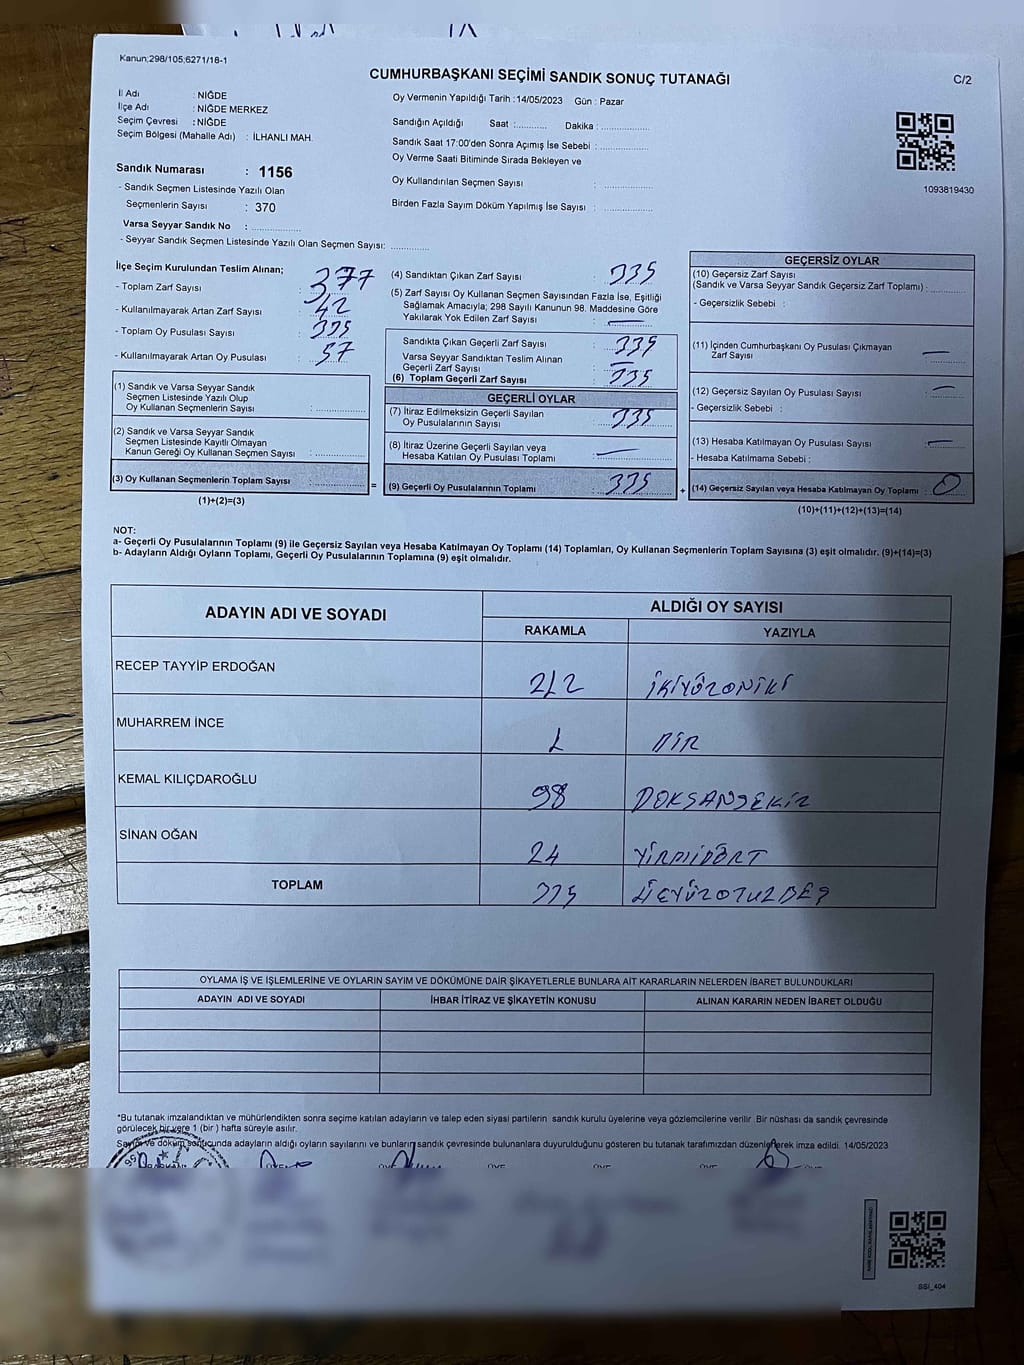 Kanun;298/105,6271/18-1
CUMHURBAŞKANI SEÇİMİ SANDIK SONUÇ TUTANAĞI
C/2
İl Adı : NİĞDE
İlçe Adı : NİĞDE MERKEZ
Seçim Çevresi : NİĞDE
Seçim Bölgesi (Mahalle Adı) : İLHANLI MAH.
Sandık Numarası : 1156
- Sandık Seçmen Listesinde Yazılı Olan
Seçmenlerin Sayısı : 370
Varsa Seyyar Sandık No :
- Seyyar Sandık Seçmen Listesinde Yazılı Olan Seçmen Sayısı:
Oy Vermenin Yapıldığı Tarih :14/05/2023 Gün : Pazar
Sandığın Açıldığı Saat : Dakika :
Sandık Saat 17:00'den Sonra Açımış İse Sebebi :
Oy Verme Saati Bitiminde Sırada Bekleyen ve
Oy Kullandırılan Seçmen Sayısı :
Birden Fazla Sayım Döküm Yapılmış İse Sayısı :
1093819430
İlçe Seçim Kurulundan Teslim Alınan;
- Toplam Zarf Sayısı : 377
- Kullanılmayarak Artan Zarf Sayısı : 42
- Toplam Oy Pusulası Sayısı :
- Kullanılmayarak Artan Oy Pusulası :
(1) Sandık ve Varsa Seyyar Sandık
Seçmen Listesinde Yazılı Olup
Oy Kullanan Seçmenlerin Sayısı :
(2) Sandık ve Varsa Seyyar Sandık
Seçmen Listesinde Kayıtlı Olmayan
Kanun Gereği Oy Kullanan Seçmen Sayısı :
(3) Oy Kullanan Seçmenlerin Toplam Sayısı :
(1)+(2)=(3)
=
(4) Sandıktan Çıkan Zarf Sayısı : 335
(5) Zarf Sayısı Oy Kullanan Seçmen Sayısından Fazla İse, Eşitliği
Sağlamak Amacıyla; 298 Sayılı Kanunun 98. Maddesine Göre
Yakılarak Yok Edilen Zarf Sayısı : —
Sandıkta Çıkan Geçerli Zarf Sayısı : 335
Varsa Seyyar Sandıktan Teslim Alınan
Geçerli Zarf Sayısı : —
(6) Toplam Geçerli Zarf Sayısı : 335
GEÇERLİ OYLAR
(7) İtiraz Edilmeksizin Geçerli Sayılan
Oy Pusulalarının Sayısı : 335
(8) İtiraz Üzerine Geçerli Sayılan veya
Hesaba Katılan Oy Pusulası Toplamı : —
(9) Geçerli Oy Pusulalarının Toplamı : 335
+
GEÇERSİZ OYLAR
(10) Geçersiz Zarf Sayısı
(Sandık ve Varsa Seyyar Sandık Geçersiz Zarf Toplamı) :
- Geçersizlik Sebebi :
(11) İçinden Cumhurbaşkanı Oy Pusulası Çıkmayan
Zarf Sayısı : —
(12) Geçersiz Sayılan Oy Pusulası Sayısı : —
- Geçersizlik Sebebi :
(13) Hesaba Katılmayan Oy Pusulası Sayısı : —
- Hesaba Katılmama Sebebi :
(14) Geçersiz Sayılan veya Hesaba Katılmayan Oy Toplamı : 0
(10)+(11)+(12)+(13)=(14)
NOT:
a- Geçerli Oy Pusulalarının Toplamı (9) ile Geçersiz Sayılan veya Hesaba Katılmayan Oy Toplamı (14) Toplamları, Oy Kullanan Seçmenlerin Toplam Sayısına (3) eşit olmalıdır. (9)+(14)=(3)
b- Adayların Aldığı Oyların Toplamı, Geçerli Oy Pusulalarının Toplamına (9) eşit olmalıdır.
ADAYIN ADI VE SOYADI ALDIĞI OY SAYISI
RAKAMLA YAZIYLA
RECEP TAYYİP ERDOĞAN 212 İKİYÜZONİKİ
MUHARREM İNCE 1 BİR
KEMAL KILIÇDAROĞLU 98 DOKSANSEKİZ
SİNAN OĞAN 24 YİRMİDÖRT
TOPLAM 335 ÜÇYÜZOTUZBEŞ
OYLAMA İŞ VE İŞLEMLERİNE VE OYLARIN SAYIM VE DÖKÜMÜNE DAİR ŞİKAYETLERLE BUNLARA AİT KARARLARIN NELERDEN İBARET BULUNDUKLARI
ADAYIN ADI VE SOYADI İHBAR İTİRAZ VE ŞİKAYETİN KONUSU ALINAN KARARIN NEDEN İBARET OLDUĞU
*Bu tutanak imzalandıktan ve mühürlendikten sonra seçime katılan adayların ve talep eden siyasi partilerin sandık kurulu üyelerine veya gözlemcilerine verilir. Bir nüshası da sandık çevresinde
görülecek bir yere 1 (bir ) hafta süreyle asılır.
Sayım ve döküm sonucunda adayların aldığı oyların sayılarını ve bunların sandık çevresinde bulunanlara duyurulduğunu gösteren bu tutanak tarafımızdan düzenlenerek imza edildi. 14/05/2023
SSI_404